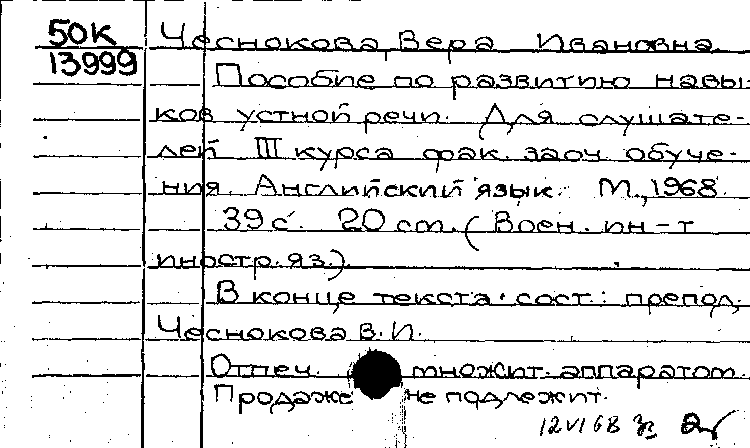 50К Чеснокова, Вера Ивановна.
13999 Пособие по развитию навы-
ков устной речи. Для слушате-
лей III курса фак. заоч. обуче-
ния. Английский язык. М., 1968.
39 с. 20 cm. (Воен. ин-т
иностр. яз.).
В конце текста: сост.: препод.
Чеснокова В. И.
Отпеч. множит. аппаратом.
Продаже не подлежит.